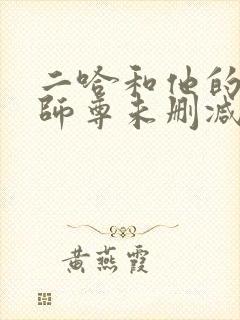 二哈和他的
師尊未删减
黄燕霞